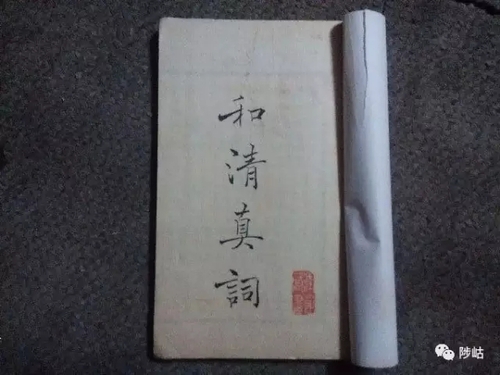 和清真詞
陟岵